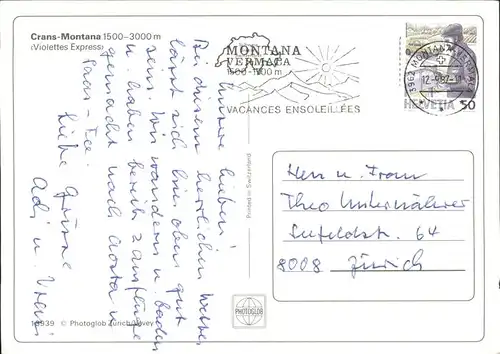 Crans-Montana 1500-3000 m
(Violettes Express)
MONTANA
VERMALA
1500-1700 m
VACANCES ENSOLEILLÉES
3962 MONTANA-VERMALA
12.-9.87-11
HELVETIA 50
Unsere Lieben!
Bei diesem herrlichen Wetter
lässt sich hier oben gut
sein. Wir wandern u. baden
u. haben bereits 2 Ausflüge
gemacht nach Aosta u.
Saas-Fee.
Liebe Grüsse
Adi u. Vreni
Herr u. Frau
Theo Unternährer
Seefeldstr. 64
8008 Zürich
Printed in Switzerland
PHOTOGLOB
© Photoglob Zürich/Vevey